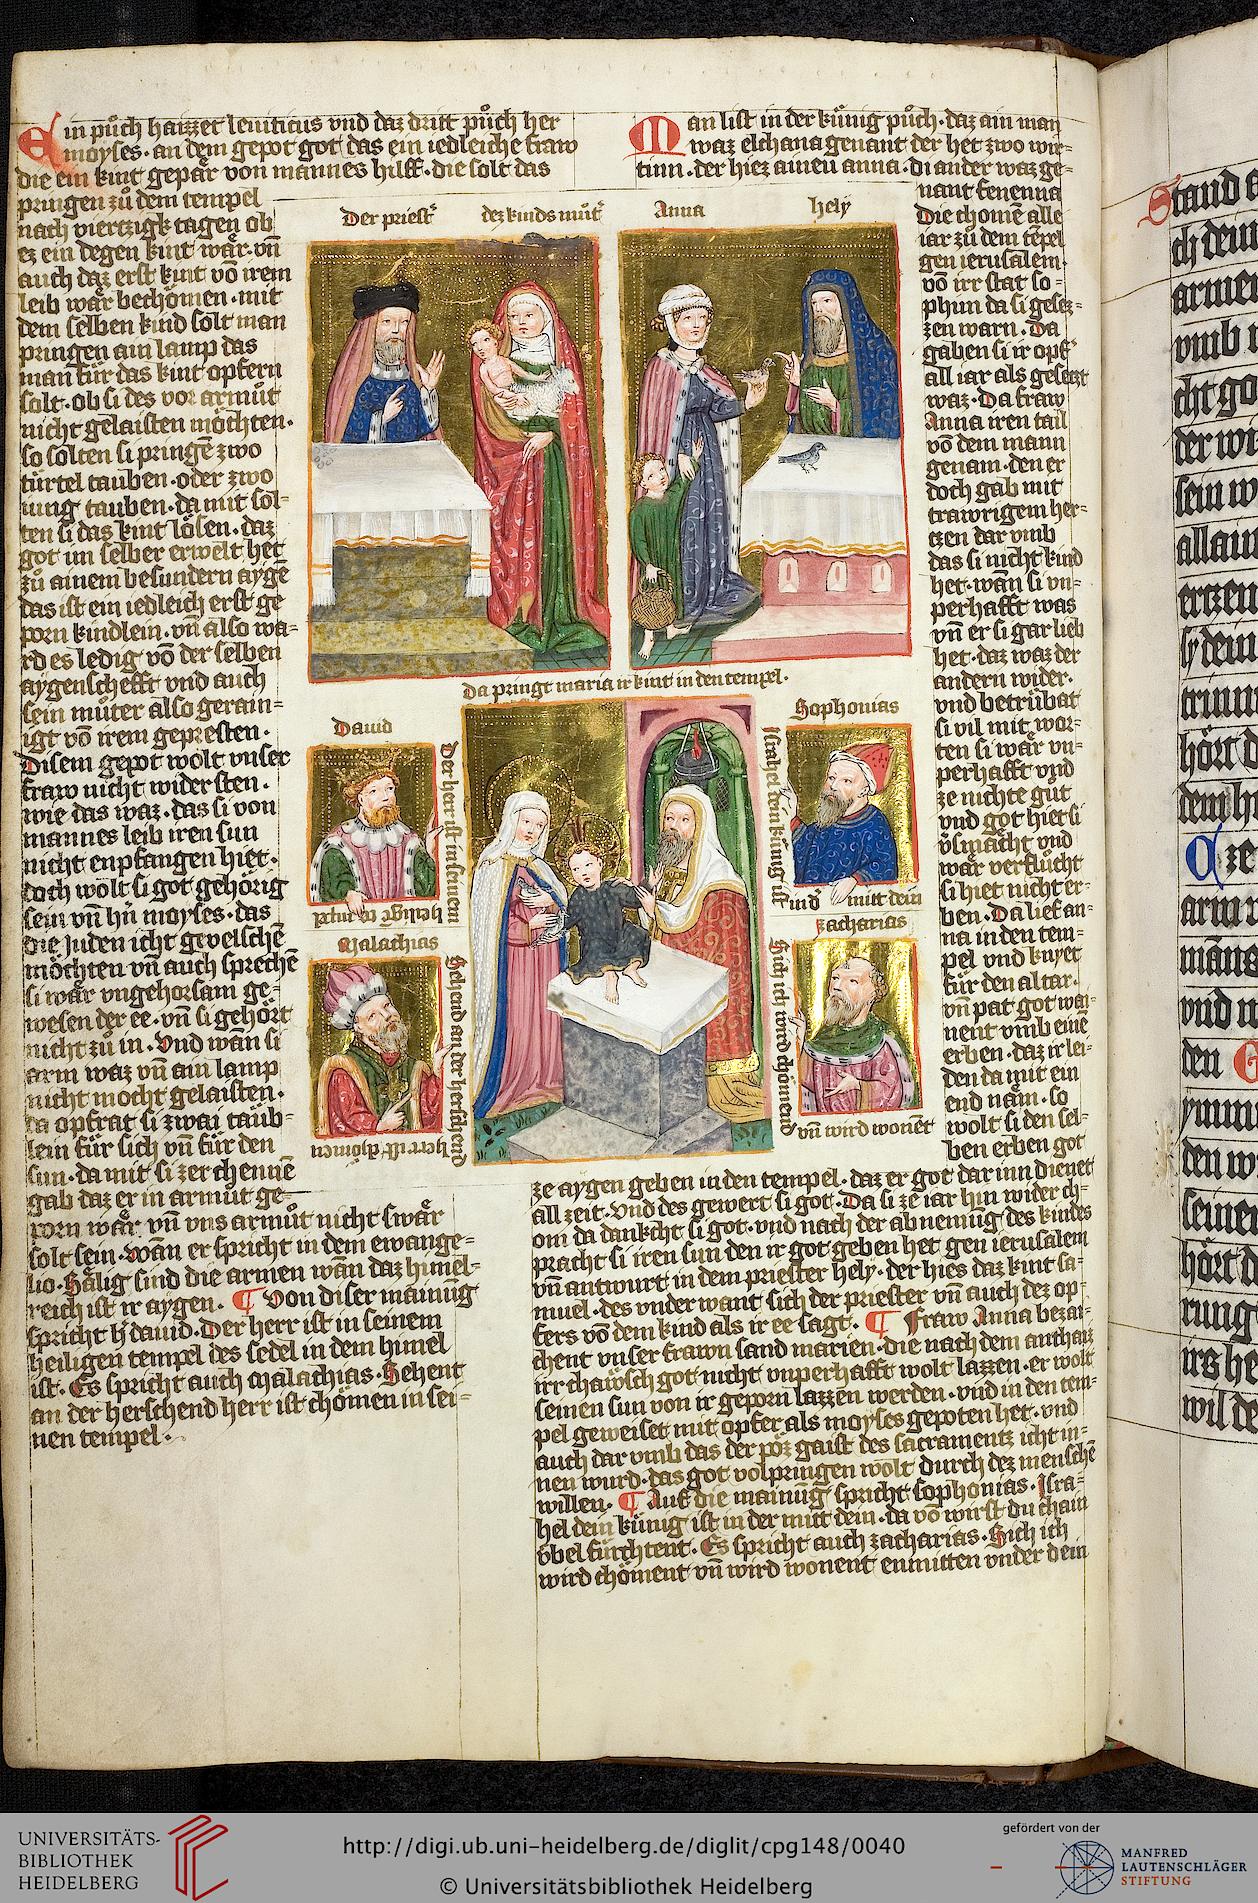 Ein půch haizzet leuiticus vnd daz dritt půch her
moyses · an dem gepot got das ein iedleiche fraw
die ein kint gepär von mannes hilff · die solt das
pringen zů dem tempel
nach viertzigk tagen ob
ez ein degen kint wär · vn̄
auch daz erst kint vō irem
leib wär bechömen · mit
dem selben kind solt man
pringen ain lamp das
man für das kint opfern
solt · ob si des vor armůt
nicht gelaisten möchten ·
so solten si pringē zwo
türtel tauben · oder zwo
iung tauben · da mit sol-
ten si das kint lösen · daz
got im selber erwelt het
zů ainem besundern aygē
das ist ein iedleich erst ge
porn kindlein · vn̄ also wa-
rd es ledig vō der selben
aygenschefft vnd auch
sein můter also gerain-
igt vō irem gepresten ·
Disem gepot wolt vnser
fraw nicht widersten ·
wie das waz · das si von
mannes leib iren sun
nicht enpfangen hiet ·
doch wolt si got gehörig
sein vn̄ hn̄ moyses · das
die Juden icht gevelschē
möchten vn̄ auch sprechē
si wär vngehorsam ge-
wesen der ee · vn̄ si gehört
nicht zů in · Vnd wān si
arm waz vn̄ ain lamp
nicht mocht gelaisten ·
da opfrat si zwai täub-
lein für sich vn̄ für den
sun · da mit si zerchennē
gab daz er in armůt ge-
porn wär vn̄ vns armůt nicht swär
solt sein · Wān er spricht in dem ewange-
lio · Sälig sind die armen wān daz himel-
reich ist ir aygen · ¶ Von diser mainūg
spricht h̄ dauid · Der herr ist in seinem
heiligen tempel des sedel in dem himel
ist · Es spricht auch Malachias · Sehent
an der herschend herr ist chömen in sei-
nen tempel ·
Der priest̄
dez kinds můt̄
Anna
hely
Da pringt maria ir kint in den tempel ·
Dauid
Der herr ist in seinem
heilige tempel
Malachias
Sehend an der herschend
herr ist chömen
Sophonias
Israhel dein künig ist
in d̄ mitt dein
Zacharias
Sich ich wird chömend
vn̄ wird wonēt
Man list in der künig půch · daz ain man
waz elchana genant der het zwo wir-
tinn · der hiez aineu anna · di ander waz ge-
nant fenenna
Die chomē alle
iar zů dem tēpel
gen ierusalem ·
vō irr stat so-
phim da si gesez-
zen warn · Da
gaben si ir opf̄
all iar als gesetzt
waz · Da fraw
Anna iren tail
vō dem mann
genam · den er
doch gab mit
trawrigem her-
tzen dar vmb
das si nicht kind
het · wān si vn-
perhafft was
vn̄ er si gar lieb
het · daz waz der
andern wider ·
vnd betrübat
si vil mit wor-
ten si wär vn-
perhafft vnd
ze nichte güt
vnd got hiet si
v̈smächt vnd
wär verflücht
si hiet nicht er-
ben · Da lief an-
na in den tem-
pel vnd knyet
für den altar ·
vn̄ pat got wai-
nent vmb einē
erben · daz ir lei-
den da mit ein
end näm · so
wolt si den sel-
ben erben got
ze aygen geben in den tempel · daz er got dar inn dienet
all zeit · Vnd des gewert si got · Da si ze iar hin wider ch-
om da dankcht si got · vnd nach der abnemūg des kindes
pracht si iren sun den ir got geben het gen ierusalem
vn̄ antwurt in dem priester hely · der hies daz kint sa-
muel · des vnder want sich der priester vn̄ auch dez op-
fers vō dem kind als ir ee sagt · ¶ Fraw Anna bezai-
chent vnser frawn sand marien · die nach dem anthaiz
irr chäwsch got nicht vnperhafft wolt lazzen · er wolt
seinen sun von ir geporn lazzen werden · vnd in den tem-
pel geweiset mit opfer als moyses gepoten het · vnd
auch dar vmb das der pöz gaist des sacramentz icht in-
nen wurd · das got volpringen wolt durch dez menschē
willen · ¶ Auf die mainūg spricht sophonias · Isra-
hel dein künig ist in der mitt dein · da vō wirst du chain
übel fürchtent · Es spricht auch zacharias · Sich ich
wird chöment vn̄ wird wonent enmitten vnder dein
UNIVERSITÄTS-
BIBLIOTHEK
HEIDELBERG
http://digi.ub.uni-heidelberg.de/diglit/cpg148/0040
© Universitätsbibliothek Heidelberg
gefördert von der
MANFRED
LAUTENSCHLÄGER
STIFTUNG